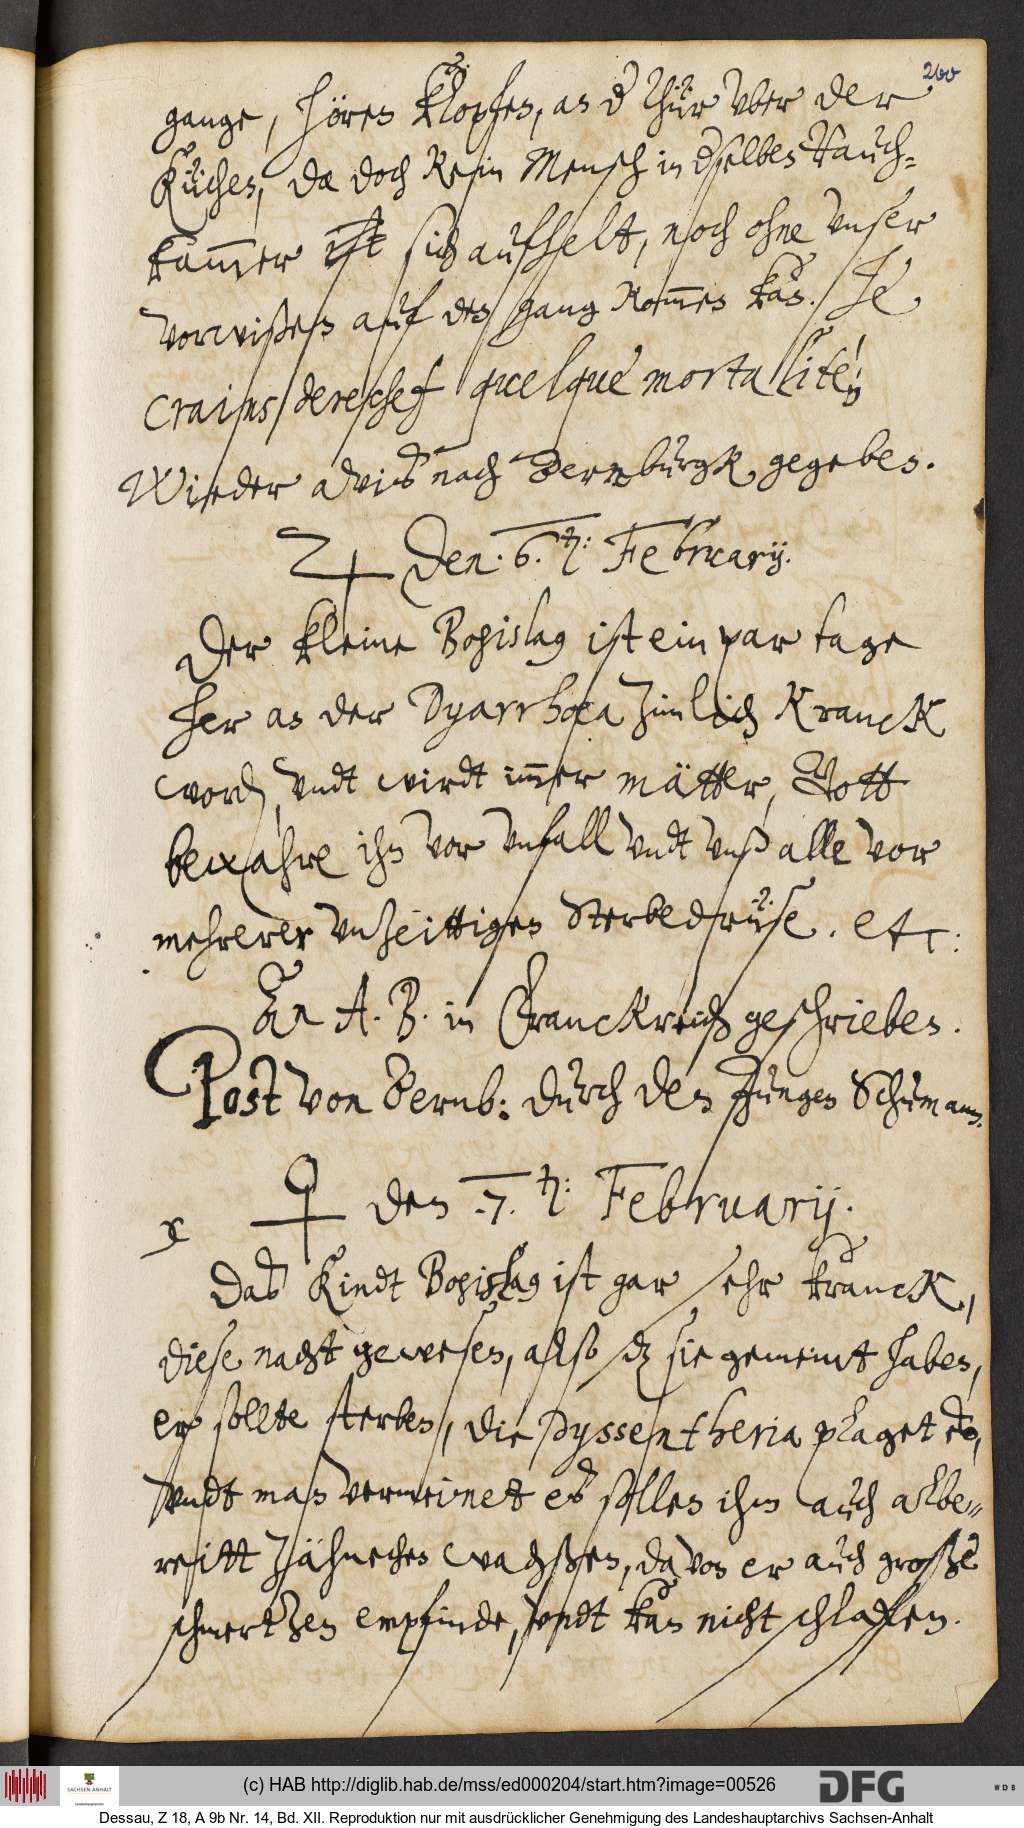 260
gange, hören klopfen, an d Thür vber der
Küchen, da doch Kein Mensch in dselben Rauch=
kam̅er ist sich aufhelt, noch ohne vnser
vorwißen auf den gang kom̅en kan. Je
crains derechef quelque mortalitè;
Wieder avis nach Bernburgk gegeben.
♃ den. 6. ten: Februarij.
Der kleine Bogislag ist ein par tage
her an der Dyarrhoea zimlich Kranck
word, vndt wirdt im̅er mätter, Gott
bewahre ihn vor vnfall vndt vnß alle vor
mehrerer vnzeittigen Sterbedrüse. etc:
An A. B. in Franckreich geschrieben.
Post von Bernb: durch den Jungen Schumann.
x ♀ den .7. ten: Februarij.
Das Kindt Bogislag ist gar sehr kranck,
diese nacht gewesen, also dz sie gemeint haben,
er sollte sterben, die Dyssentheria plaget es,
vndt man vermeinet es sollen ihm auch albe=
reitt zähnechen wachßen, davon er auch große
schmertzen empfinde, vndt kan nicht schlafen.
(c) HAB http://diglib.hab.de/mss/ed000204/start.htm?image=00526
SACHSEN-ANHALT
Landeshauptarchiv
DFG
WDB
Dessau, Z 18, A 9b Nr. 14, Bd. XII. Reproduktion nur mit ausdrücklicher Genehmigung des Landeshauptarchivs Sachsen-Anhalt